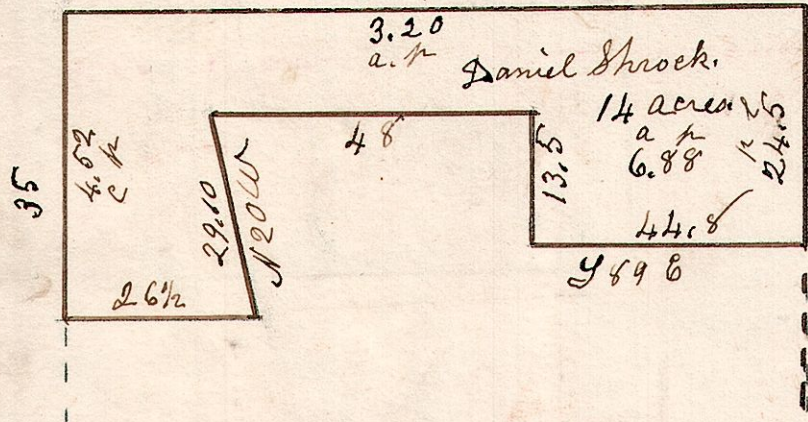 3.20
a. p
Daniel Shrock.
14 acres
a p
6.88
24.5
48
13.5
44.8
S 89 E
35
4.52
29.10
N 20 W
26½